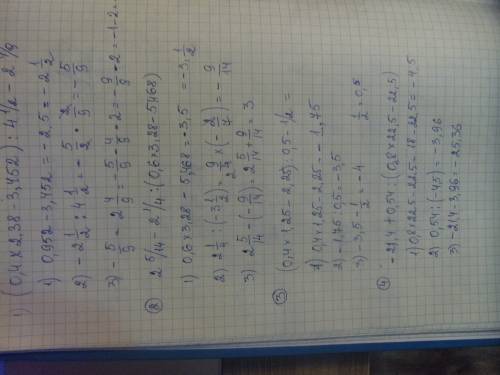 1) (0,4 x 2,38 - 3,452) : 4 1/2 - 2 4/9
1) 0,952 - 3,452 = -2,5 = -2 1/2
2) -2 1/2 : 4 1/2 = -5/2 · 2/9 = -5/9
3) -5/9 - 2 4/9 = -5/9 - 4/9 - 2 = -9/9 - 2 = -1 - 2 =
② 2 5/14 - 2 1/4 : (0,6 x 3,28 - 5,468)
1) 0,6 x 3,28 - 5,468 = -3,5 = -3 1/2
2) 2 1/4 : (-3 1/2) = 9/4 x (-2/7) = -9/14
3) 2 5/14 - (-9/14) = 2 5/14 + 9/14 = 3
③ (0,4 x 1,25 - 2,25) : 0,5 - 1/2 =
1) 0,4 x 1,25 - 2,25 = -1,75
2) -1,75 : 0,5 = -3,5
3) -3,5 - 1/2 = -4 1/2 = 0,5
④ -21,4 + 0,54 : (0,8 x 22,5 - 22,5)
1) 0,8 x 22,5 - 22,5 = 18 - 22,5 = -4,5
2) 0,54 : (-4,5) = -3,96
3) -21,4 - 3,96 = -25,36